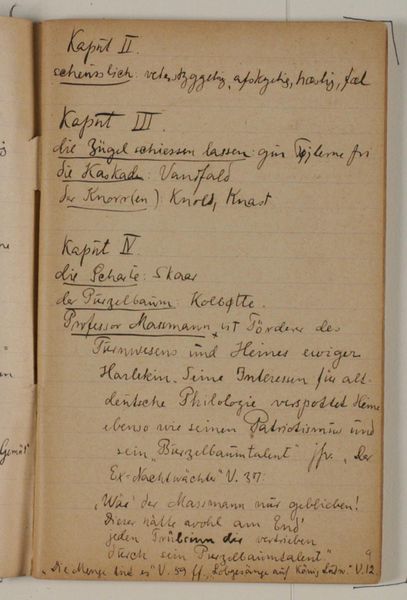 Kaput II.
scheusslich: vederstyggelig, afskyelig, hæslig, fæl
Kaput III
die Zügel schiessen lassen: giv Tøjlerne fri
die Kaskade: Vandfald
der Knorr(en): Knold, Knast
Kaput IV
die Scharte: Skaar
der Purzelbaum: Kolbøtte.
Professor Massmann, ist Förderer des
Turnwesens und Heines ewiger
Harlekin. Seine Interessen für alt-
deutsche Philologie verspottet Heine
ebenso wie seinen Patriotismus und
sein „Burzelbaumtalent" jfr. „Der
Ex-Nachtwächter" V. 37:
„Wär' der Massmann nur geblieben!
Dieser hätte wohl am End'
jeden Trübsinn dir vertrieben
durch sein Purzelbaumtalent"
„Die Menge tut es" V. 59 ff „Lobgesänge auf König Ludw." V. 12